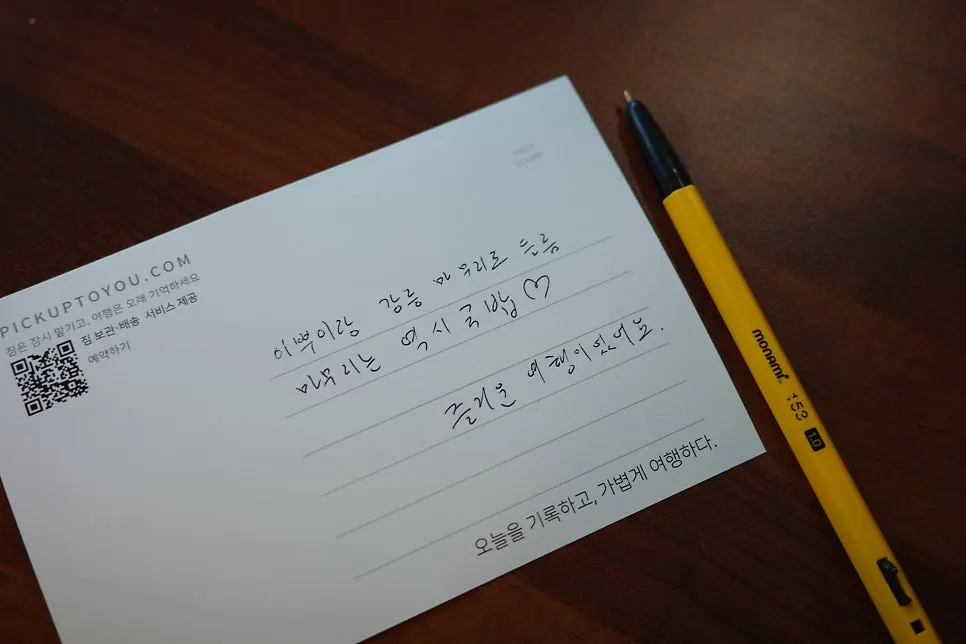 POST
STAMP
PICKUPTOYOU.COM
짐은 잠시 맡기고, 여행은 오래 기억하세요
짐 보관·배송 서비스 제공
예약하기
이쁘이랑 강릉 마무리로 들름
마무리는 역시 국밥♡
즐거운 여행이었어요.
오늘을 기록하고, 가볍게 여행하다.
monami
153
1.0